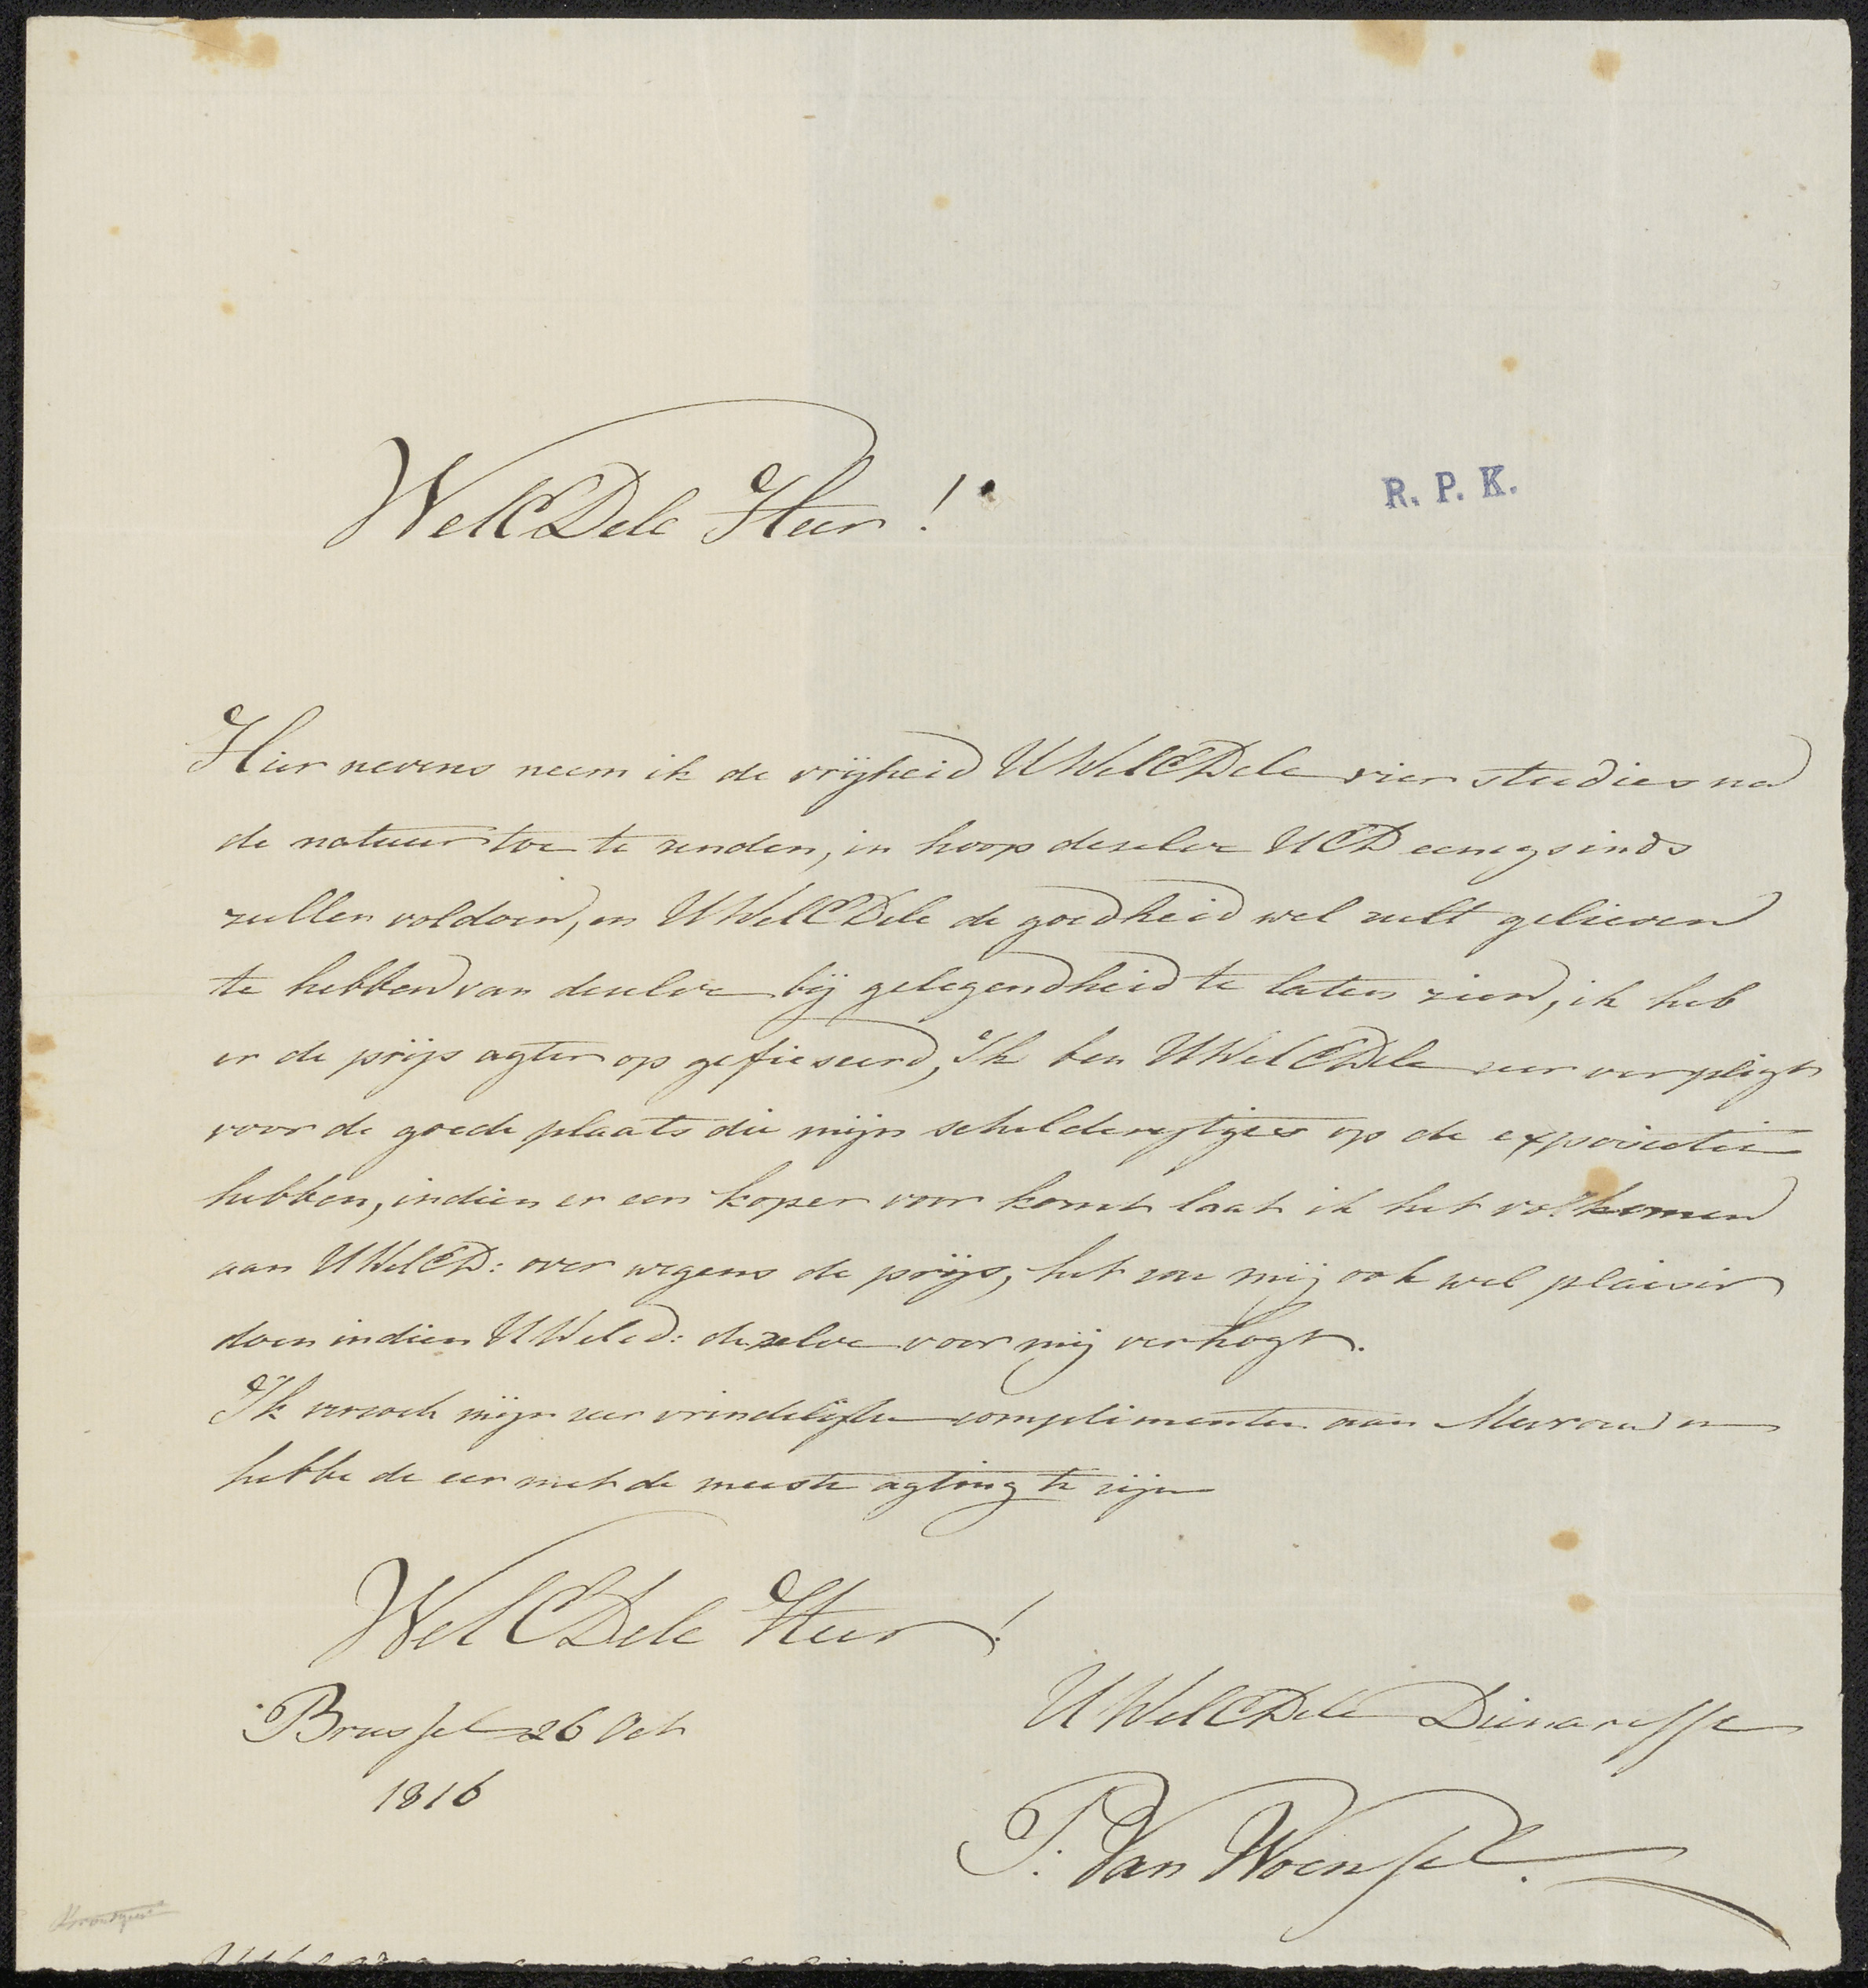 WelEDele Heer!
R. P. K.
Hier nevens neem ik de vrijheid UWelEDele vier studies na
de natuur toe te zenden, in hoop dezelve UED eenegsinds
zullen voldoen, en UWelEDele de goedheid wel zult gelieven
te hebben van dezelve bij gelegendheid te laten zien, ik heb
er de prijs agter op gefieseerd, Ik ben UWelEDele zeer verpligt
voor de goede plaats die mijn schilderytjes op de exposietie
hebben, indien er een koper voor komt laat ik het volkomen
aan UWelED: over wegens de prijs, het zou mij ook wel plaisir
doen indien UWelEd: dezelve voor mij verkogt.
Ik verzoek mijn zeer vrindelijke complimenten aan Mevrou en
hebbe de eer met de meeste agting te zijn
WelEDele Heer!
Brussel 26 Oct
1816
UWelEDele Dienaresse
P. Van Woensel.